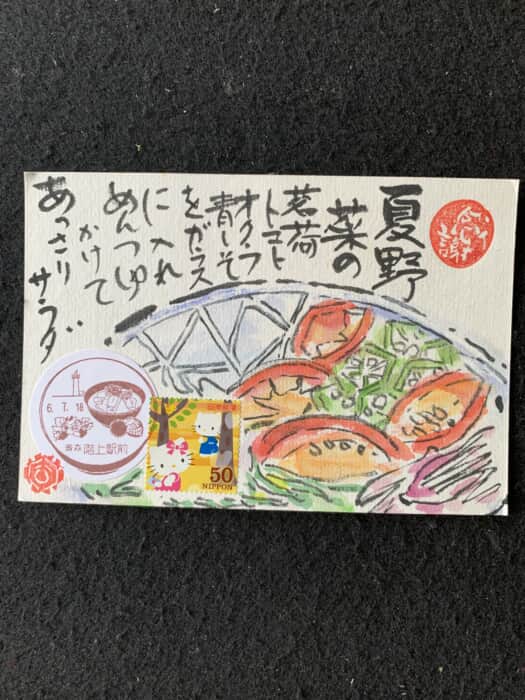 夏野
菜の
茗荷
トマト
オクラ
青いそ
をガラス
に入れ
めんつゆ
かけて
あっさり
サラダ
6.7.18
青森 階上駅前
日本郵便
50
NIPPON